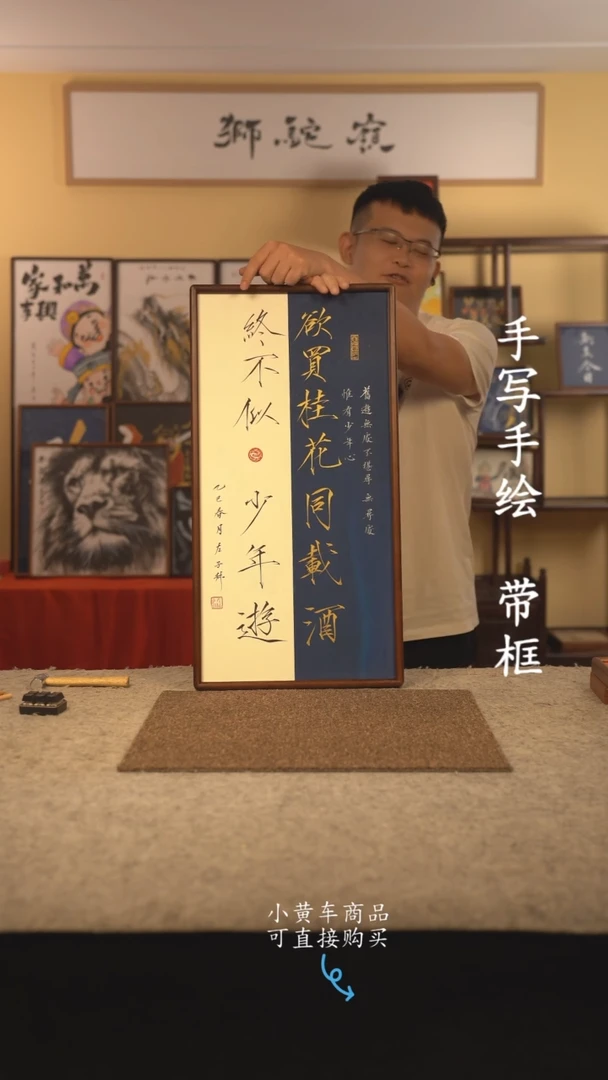 獅駝嶺
家和萬
事興
欲買桂花同載酒
終不似 少年遊
舊遊無處不堪尋 無尋處
惟有少年心
乙巳春月
手写手绘 带框
小黄车商品
可直接购买